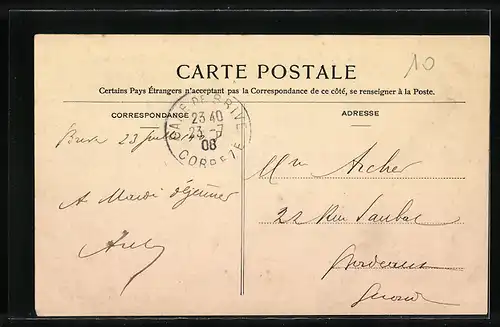 10
CARTE POSTALE
Certains Pays Étrangers n'acceptant pas la Correspondance de ce côté, se renseigner à la Poste.
CORRESPONDANCE
ADRESSE
GARE DE BRIVE
23 40
23 - 7
08
CORREZE
Brive 23 Juillet
A Mardi déjeuner
Mm Archer
22 Rue
Bordeaux
Gironde